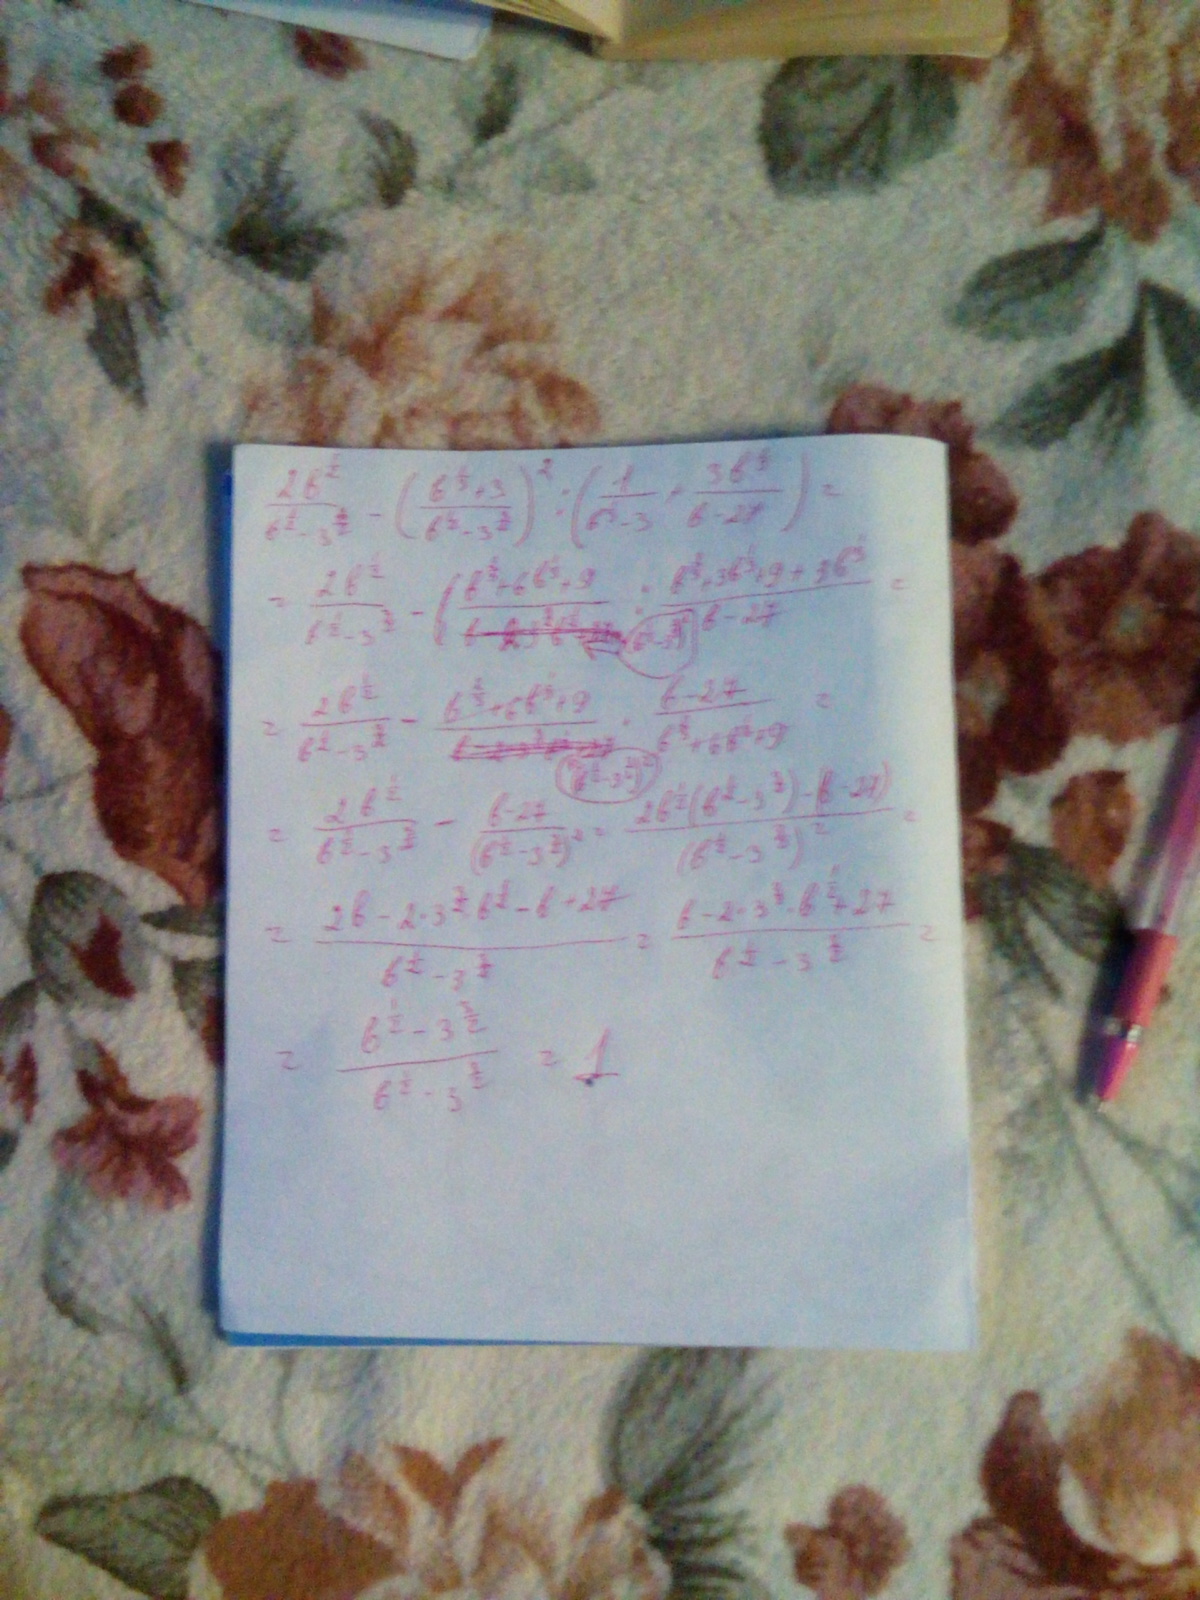 \frac{2b^{\frac{1}{2}}}{b^{\frac{1}{2}}-3^{\frac{3}{2}}} - \left(\frac{b^{\frac{1}{3}}+3}{b^{\frac{1}{2}}-3^{\frac{3}{2}}}\right)^2 : \left(\frac{1}{b^{\frac{1}{3}}-3} + \frac{3b^{\frac{1}{3}}}{b-27}\right) =
= \frac{2b^{\frac{1}{2}}}{b^{\frac{1}{2}}-3^{\frac{3}{2}}} - \left(\frac{b^{\frac{2}{3}}+6b^{\frac{1}{3}}+9}{(b^{\frac{1}{2}}-3^{\frac{3}{2}})^2} : \frac{b^{\frac{2}{3}}+3b^{\frac{1}{3}}+9+3b^{\frac{1}{3}}}{b-27} =
= \frac{2b^{\frac{1}{2}}}{b^{\frac{1}{2}}-3^{\frac{3}{2}}} - \frac{b^{\frac{2}{3}}+6b^{\frac{1}{3}}+9}{(b^{\frac{1}{2}}-3^{\frac{3}{2}})^2} \cdot \frac{b-27}{b^{\frac{2}{3}}+6b^{\frac{1}{3}}+9} =
= \frac{2b^{\frac{1}{2}}}{b^{\frac{1}{2}}-3^{\frac{3}{2}}} - \frac{b-27}{(b^{\frac{1}{2}}-3^{\frac{3}{2}})^2} = \frac{2b^{\frac{1}{2}}(b^{\frac{1}{2}}-3^{\frac{3}{2}})-(b-27)}{(b^{\frac{1}{2}}-3^{\frac{3}{2}})^2} =
= \frac{2b-2\cdot3^{\frac{3}{2}}\cdot b^{\frac{1}{2}}-b+27}{b^{\frac{1}{2}}-3^{\frac{3}{2}}} = \frac{b-2\cdot3^{\frac{3}{2}}\cdot b^{\frac{1}{2}}+27}{b^{\frac{1}{2}}-3^{\frac{3}{2}}} =
= \frac{b^{\frac{1}{2}}-3^{\frac{3}{2}}}{b^{\frac{1}{2}}-3^{\frac{3}{2}}} = 1